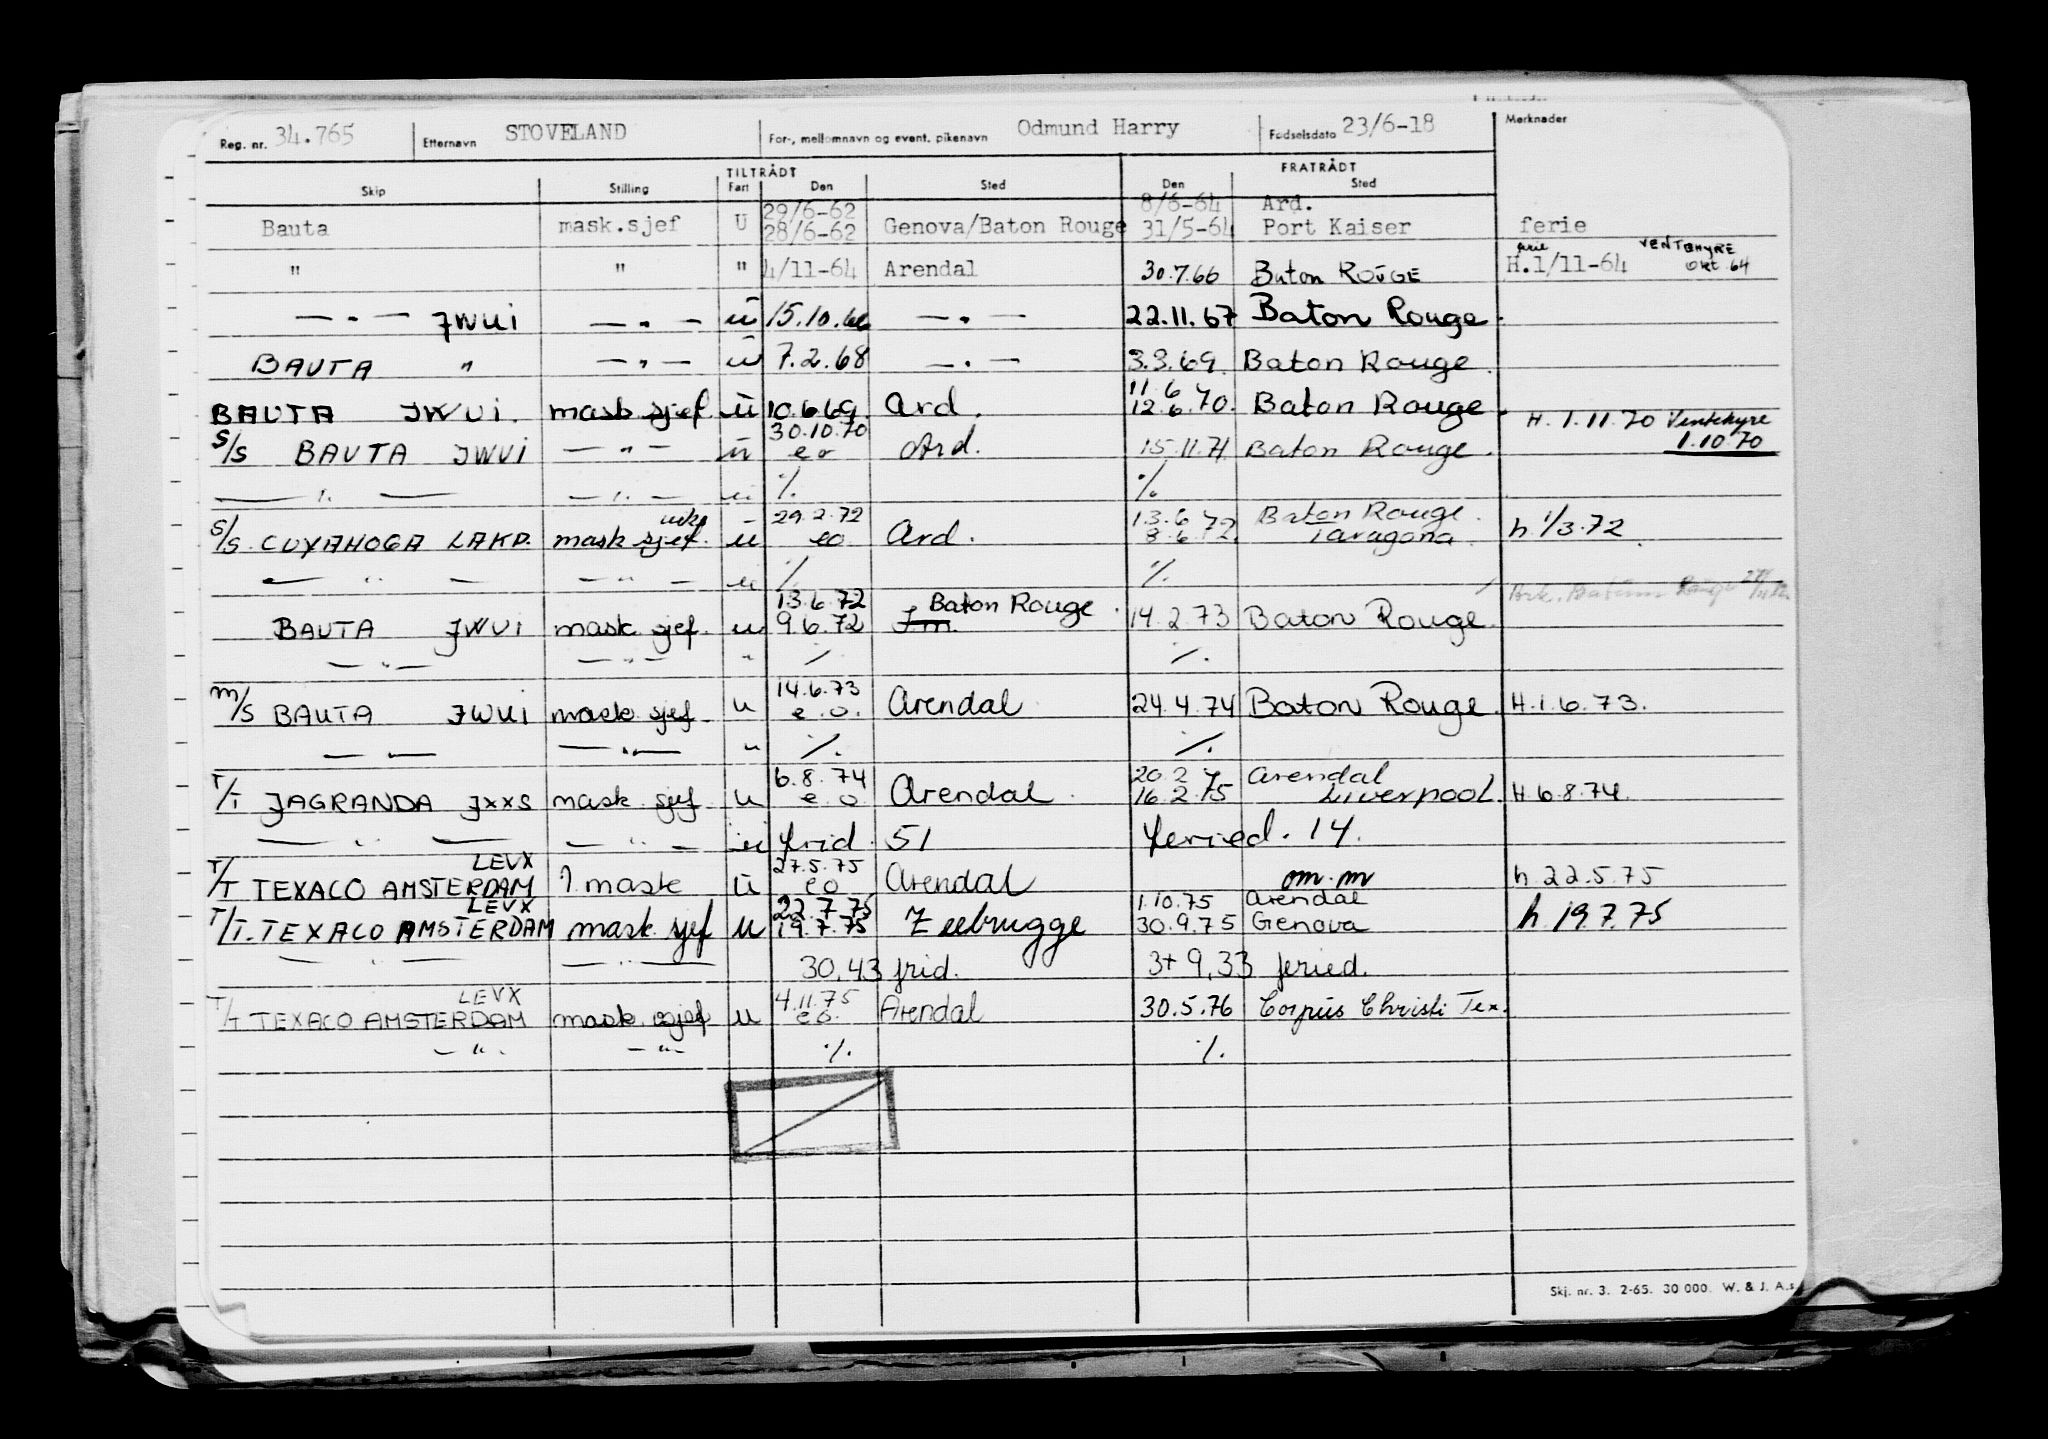 Reg. nr. 34.765 Etternavn STOVELAND For-, mellomnavn og event. pikenavn Odmund Harry Fødselsdato 23/6-18 Merknader
TILTRÅDT FRATRÅDT
Skip Stilling Fart Den Sted Den Sted
29/6-62 8/6-64 Ard.
Bauta mask.sjef U 28/6-62 Genova/Baton Rouge 31/5-64 Port Kaiser ferie
" " " 4/11-64 Arendal 30.7.66 Baton ROUGE H.1/11-64 VENTEHYRE okt 64
— " — JWUI — " — u 15.10.66 — " — 22.11.67 Baton Rouge.
BAUTA " — " — u 7.2.68 — " — 3.3.69 Baton Rouge.
11 6
BAUTA JWUI. mask sjef u 10.6.69 Ard. 12.6.70. Baton Rouge.
30.10.70 H. 1.11.70 Ventehyre
S/S BAUTA JWUI — " — u eo Ard. 15.11.71 Baton Rouge. 1.10.70
— " — — " — u % %
29.2.72 13.6 Baton Rouge.
S/S CUYAHOGA mask sjef. u eo Ard. 8.6.72. Taragona. h 1/3.72.
— " — — " — u % %
13.6.72 Baton Rouge.
BAUTA JWUI mask. sjef. u 9.6.72 14.2.73 Baton Rouge.
— " — — " — " % %
14.6.73
M/S BAUTA JWUI mask sjef. u e.o. Arendal 24.4.74 Baton Rouge. H.1.6.73.
— " — — " — " % %
6.8.74 20.2 Arendal
T/T JAGRANDA JXXS mask. sjef u e.o Arendal. 16.2.75 Liverpool. H 6.8.74.
— " — — " — u frid. 51 feried. 14.
LEVX 27.5.75
T/T TEXACO AMSTERDAM 1. mask u eo Arendal om. m h 22.5.75
LEVX 22.7.75 1.10.75 Arendal
T/T. TEXACO AMSTERDAM mask sjef u 19.7.75 Zeebrugge 30.9.75 Genova h. 19.7.75
— " — — " — 30,43 frid. 3+ 9,33 feried.
LEVX 4.11.75
T/T TEXACO AMSTERDAM mask. sjef u eo. Arendal 30.5.76 Corpus Christi Tex.
— " — — " — % %
Skj. nr. 3. 2-65. 30 000. W. & J. A.s